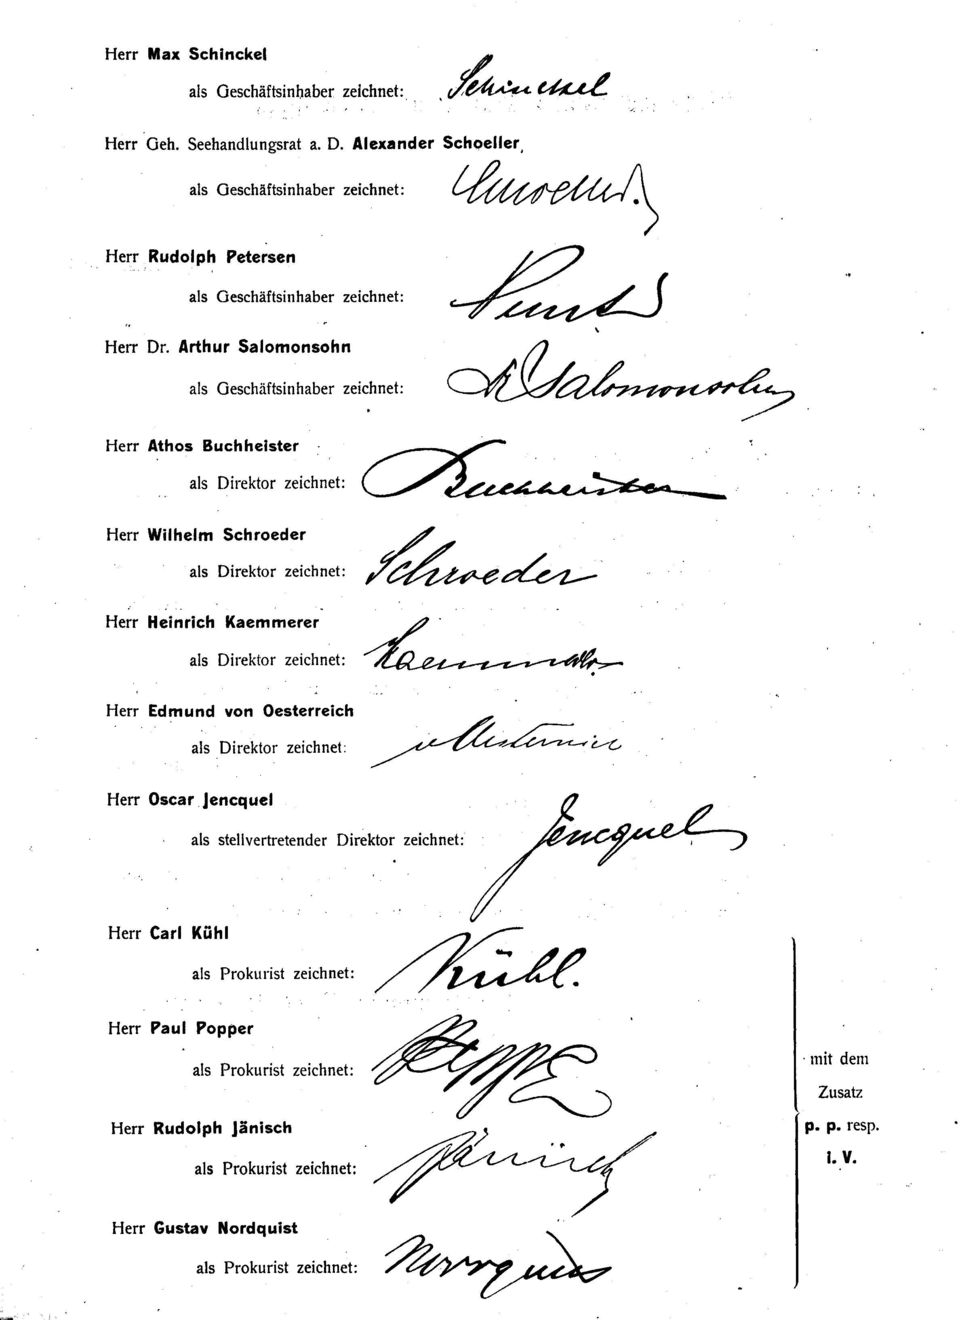 Herr Max Schinckel
als Geschäftsinhaber zeichnet: Schinckel
Herr Geh. Seehandlungsrat a. D. Alexander Schoeller,
als Geschäftsinhaber zeichnet: Schoeller.
Herr Rudolph Petersen
als Geschäftsinhaber zeichnet:
Herr Dr. Arthur Salomonsohn
als Geschäftsinhaber zeichnet: Dr Salomonsohn
Herr Athos Buchheister
als Direktor zeichnet: Buchheister
Herr Wilhelm Schroeder
als Direktor zeichnet: Schroeder
Herr Heinrich Kaemmerer
als Direktor zeichnet: Kaemmerer
Herr Edmund von Oesterreich
als Direktor zeichnet: v Oesterreich
Herr Oscar Jencquel
als stellvertretender Direktor zeichnet: Jencquel
Herr Carl Kühl
als Prokurist zeichnet: Kühl.
Herr Paul Popper
als Prokurist zeichnet: Popper
Herr Rudolph Jänisch
als Prokurist zeichnet: Jänisch
Herr Gustav Nordquist
als Prokurist zeichnet: Nordquist
mit dem
Zusatz
p. p. resp.
i. V.